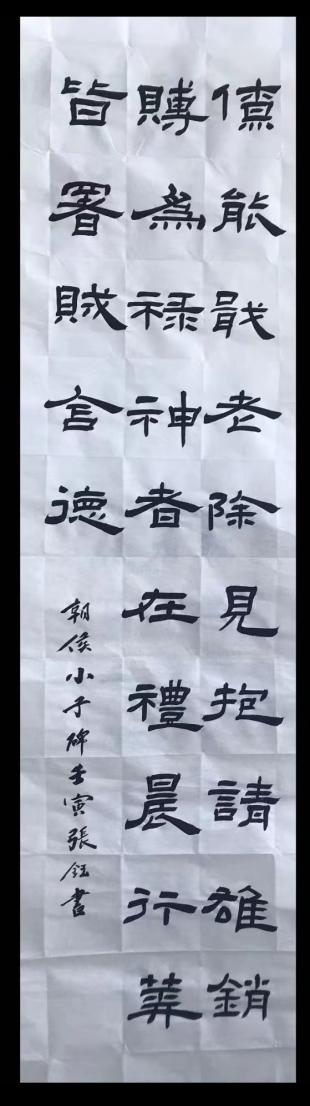 僚能戢老除見抱請雄銷
賻為禄神者在禮晨行葬
皆署賊言德
朝侯小子碑壬寅張鈺書